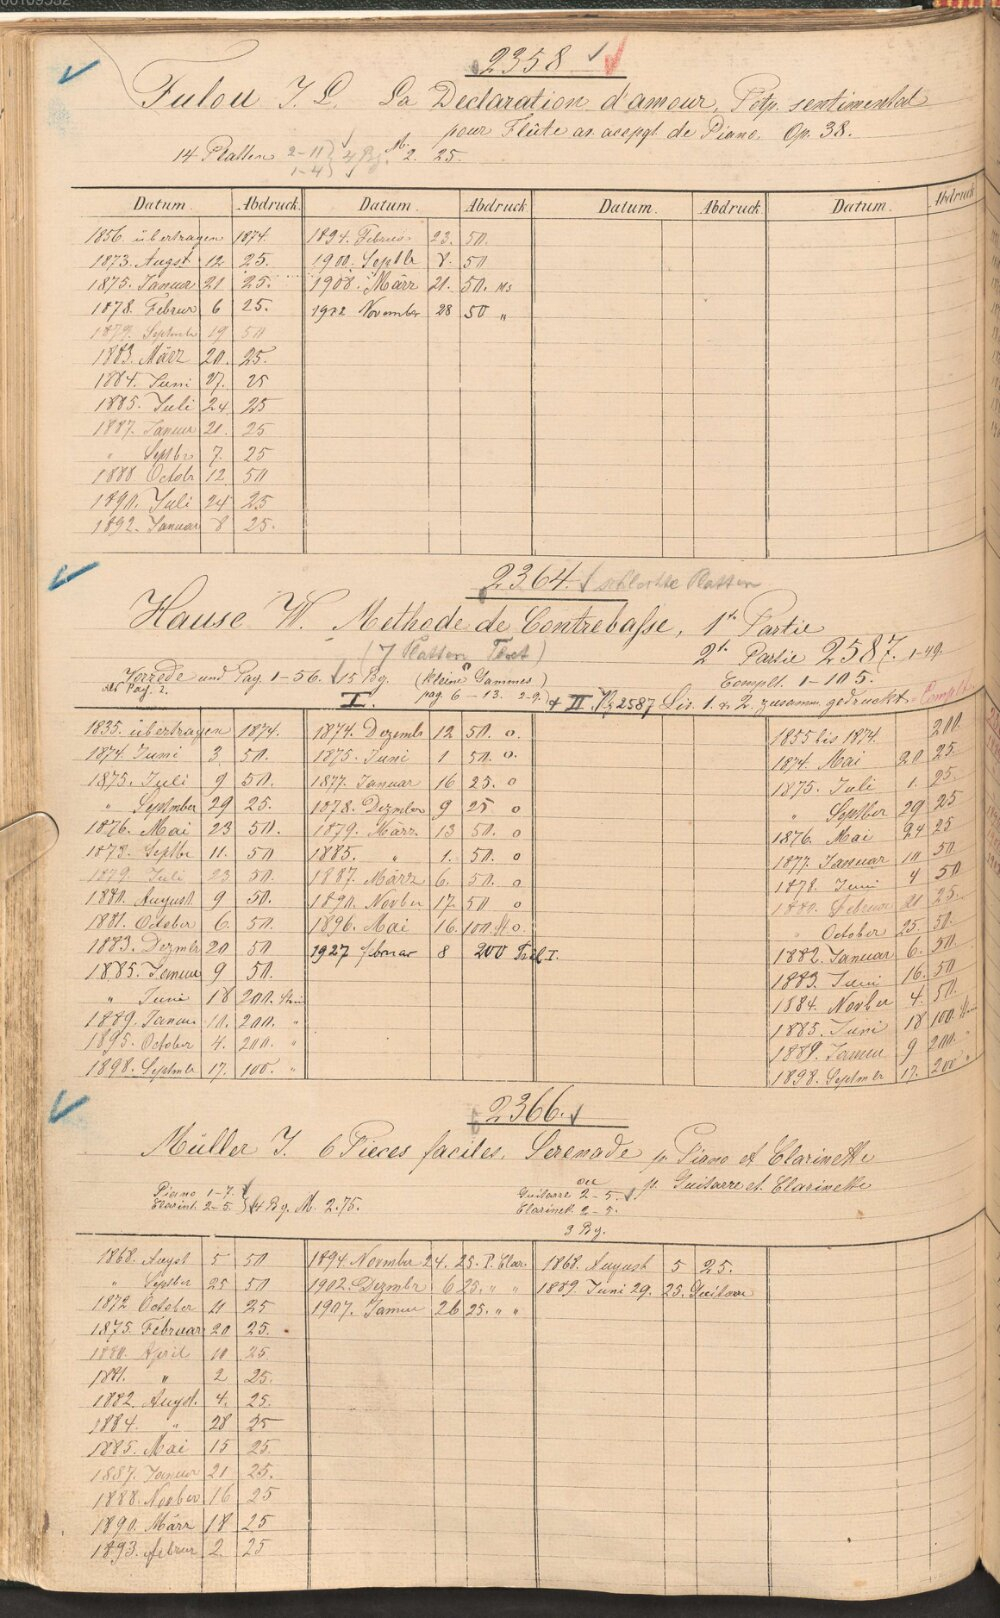 2358
Tulou J. L. La Declaration d'amour, Potp. sentimental
pour Flûte av. accpgt de Piano. Op. 38.
14 Platten 2-11 1-4 4 Bg. M. 2. 25.
Datum Abdruck. Datum. Abdruck Datum. Abdruck Datum. Abdruck
1856. übertragen 1874. 1894. Februar 23. 50.
1873. Augst 12. 25. 1900. Septbr 8. 50
1875. Januar 21 25. 1908. März 21. 50.
1878. Februar 6 25. 1922 November 28 50 "
1879. Septmbr 19 50
1883. März 20. 25.
1884. Juni 27. 25
1885. Juli 24 25
1887. Januar 21. 25
" Septbr 7. 25
1888 Octobr 12. 50
1890. Juli 24 25
1892. Januar 8 25.
2364. schlechte Platten
Hause W. Methode de Contrebasse, 1re Partie
(7 Platten Text) 2te Partie 2587. 1-49.
Vorrede und Pag. 1-56. 15 Bg. (kleine Gammes) Complt. 1-105.
als Pag. 2. I. pag. 6-13. 2-9. + II. 2587 Liv. 1. & 2. zusamm. gedruckt = Complt
1835. übertragen 1874. 1874. Dezembr 12 50. o. 1855 bis 1874. 200.
1874. Juni 3. 50. 1875. Juni 1 50. o 1874. Mai 20 25.
1875. Juli 9 50. 1877. Januar 16 25. o 1875. Juli 1. 25.
" September 29 25. 1878. Dezmber 9 25 o " Septber 29 25
1876. Mai 23 50. 1879. März 13 50. o 1876. Mai 24 25
1878. Septbr 11. 50 1885. " 1. 50. o 1877. Januar 10 50
1879. Juli 23 50. 1887. März 6. 50. o 1878. Juni 4 50
1880. August 9 50. 1890. Novber 17. 50 o 1880. Februar 21 25.
1881. October 6. 50. 1896. Mai 16. 100. St o. " October 25. 50.
1883. Dezmbr 20 50 1927 februar 8 200 Teil I. 1882. Januar 6. 50
1885. Januar 9 50. 1883. Juni 16. 50
" Juni 18 200. Stein 1884. Novber 4. 50.
1889. Januar 10. 200. " 1885. Juni 18 100.
1895. October 4. 200. " 1889. Januar 9 200.
1898. Septmbr 17. 100. " 1898. Septmbr 17. 200 "
2366.
Müller J. 6 Pieces faciles. Serenade p. Piano et Clarinette
ou p. Guitarre et Clarinette
Piano 1-7. Clarint. 2-5. 4 Bg. M. 2.75. Guitarre 2-5. Clarinet 2-5.
3 Bg.
1868. Augst 5 50 1894. November 24. 25. P. Clar. 1868. August 5 25.
" Septber 25 50 1902. Dezmbr 6 25. " " 1889. Juni 29. 25. Guitarre
1872 October 11 25 1907. Januar 26 25. " "
1875. Februar 20 25.
1880. April 10 25
1881. " 2 25.
1882. Augst. 4. 25.
1884. " 28 25
1885. Mai 15 25.
1887. Januar 21 25.
1888. Novber 16 25
1890. März 18 25
1893. Februar 2. 25